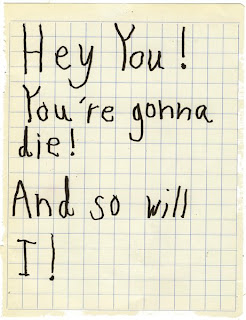 Hey You!
You're gonna
die!
And so will
I!